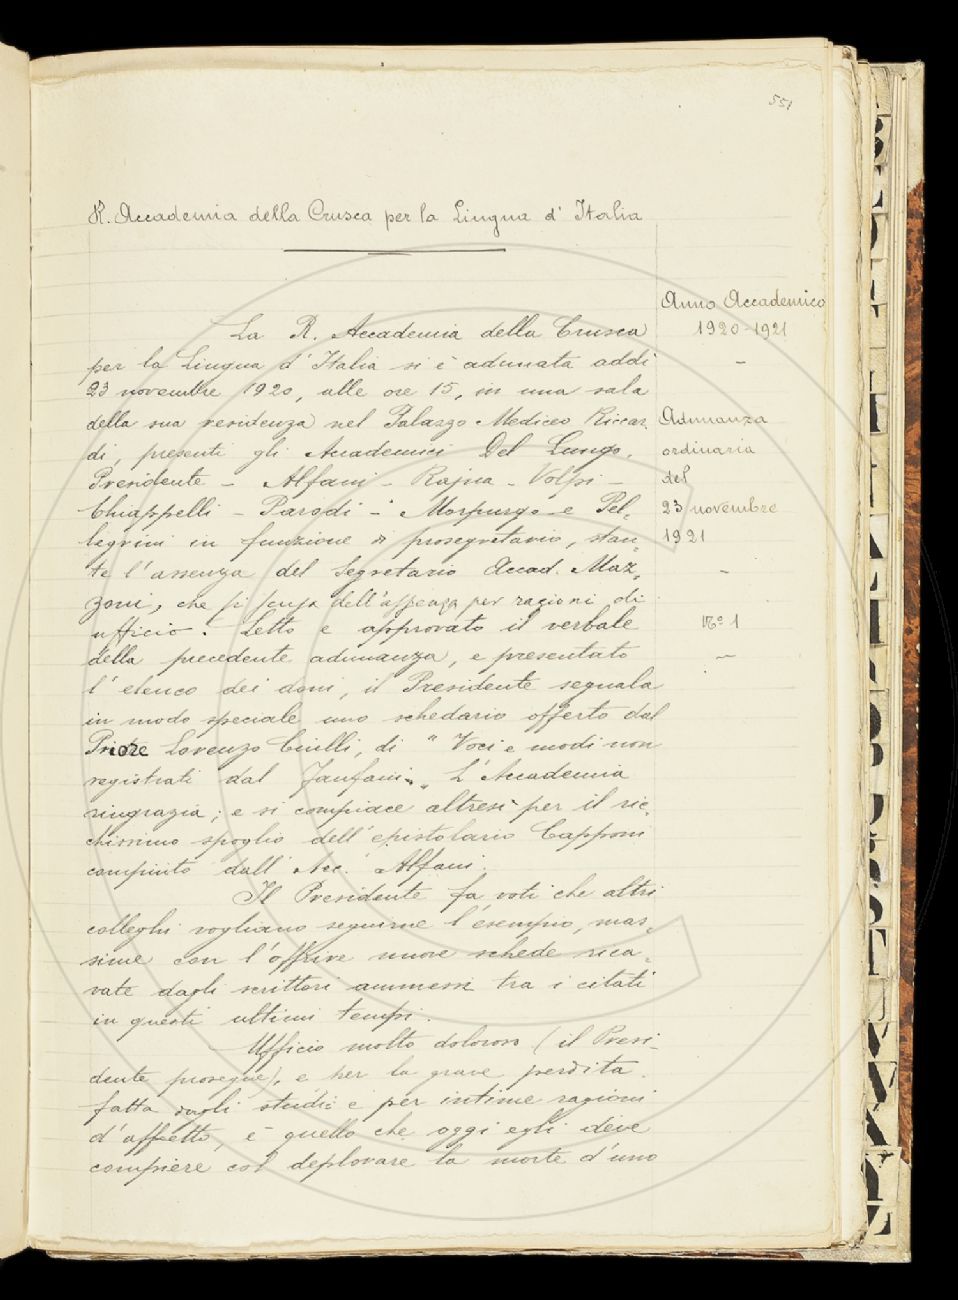 551
R. Accademia della Crusca per la Lingua d' Italia
Anno Accademico
1920-1921
Adunanza
ordinaria
del
23 novembre
1921
Nº 1
La R. Accademia della Crusca
per la Lingua d' Italia si è adunata addì
23 novembre 1920, alle ore 15, in una sala
della sua residenza nel Palazzo Mediceo Riccar„
di, presenti gli Accademici Del Lungo,
Presidente - Alfani - Rajna - Volpi -
Chiappelli - Parodi - Morpurgo e Pel„
legrini in funzione di prosegretario, stan„
te l'assenza del Segretario Accad. Maz„
zoni, che si scusa dell'assenza per ragioni di
ufficio. Letto e approvato il verbale
della precedente adunanza, e presentato
l'elenco dei doni, il Presidente segnala
in modo speciale uno schedario offerto dal
Priore Lorenzo Ciulli, di " Voci e modi non
registrati dal Fanfani„. L'Accademia
ringrazia; e si compiace altresì per il ric„
chissimo spoglio dell'epistolario Capponi
compiuto dall' Acc. Alfani.
Il Presidente fa voti che altri
colleghi vogliano seguirne l'esempio, mas„
sime con l'offrire nuove schede rica„
vate dagli scrittori ammessi tra i citati
in questi ultimi tempi.
Ufficio molto doloroso (il Presi„
dente prosegue), e per la grave perdita
fatta dagli studi e per intime ragioni
d'affetto, è quello che oggi egli deve
compiere col deplorare la morte d'uno